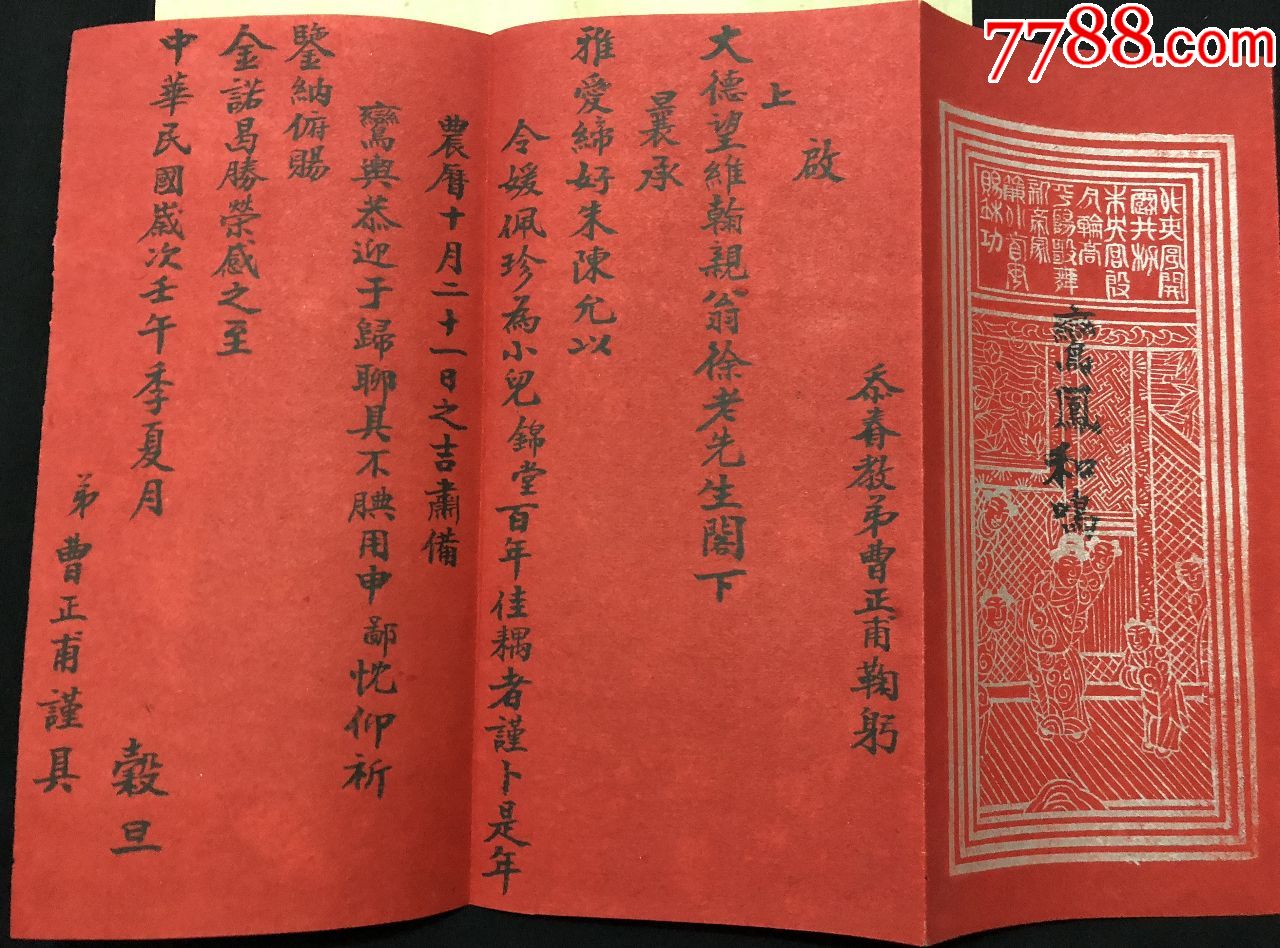 7788.com
露井桃
未央宮殿
月輪高
平陽歌舞
鸞鳳和鳴
忝眷教弟曹正甫鞠躬
啟
上
大德望維翰親翁徐老先生閣下
曩承
雅愛締好朱陳允以
令媛佩珍為小兒錦堂百年佳耦者謹卜是年
農曆十月二十一日之吉肅備
鸞輿恭迎于歸聊具不腆用申鄙忱仰祈
鑒納俯賜
金諾曷勝榮感之至
中華民國歲次壬午季夏月
穀旦
弟曹正甫謹具